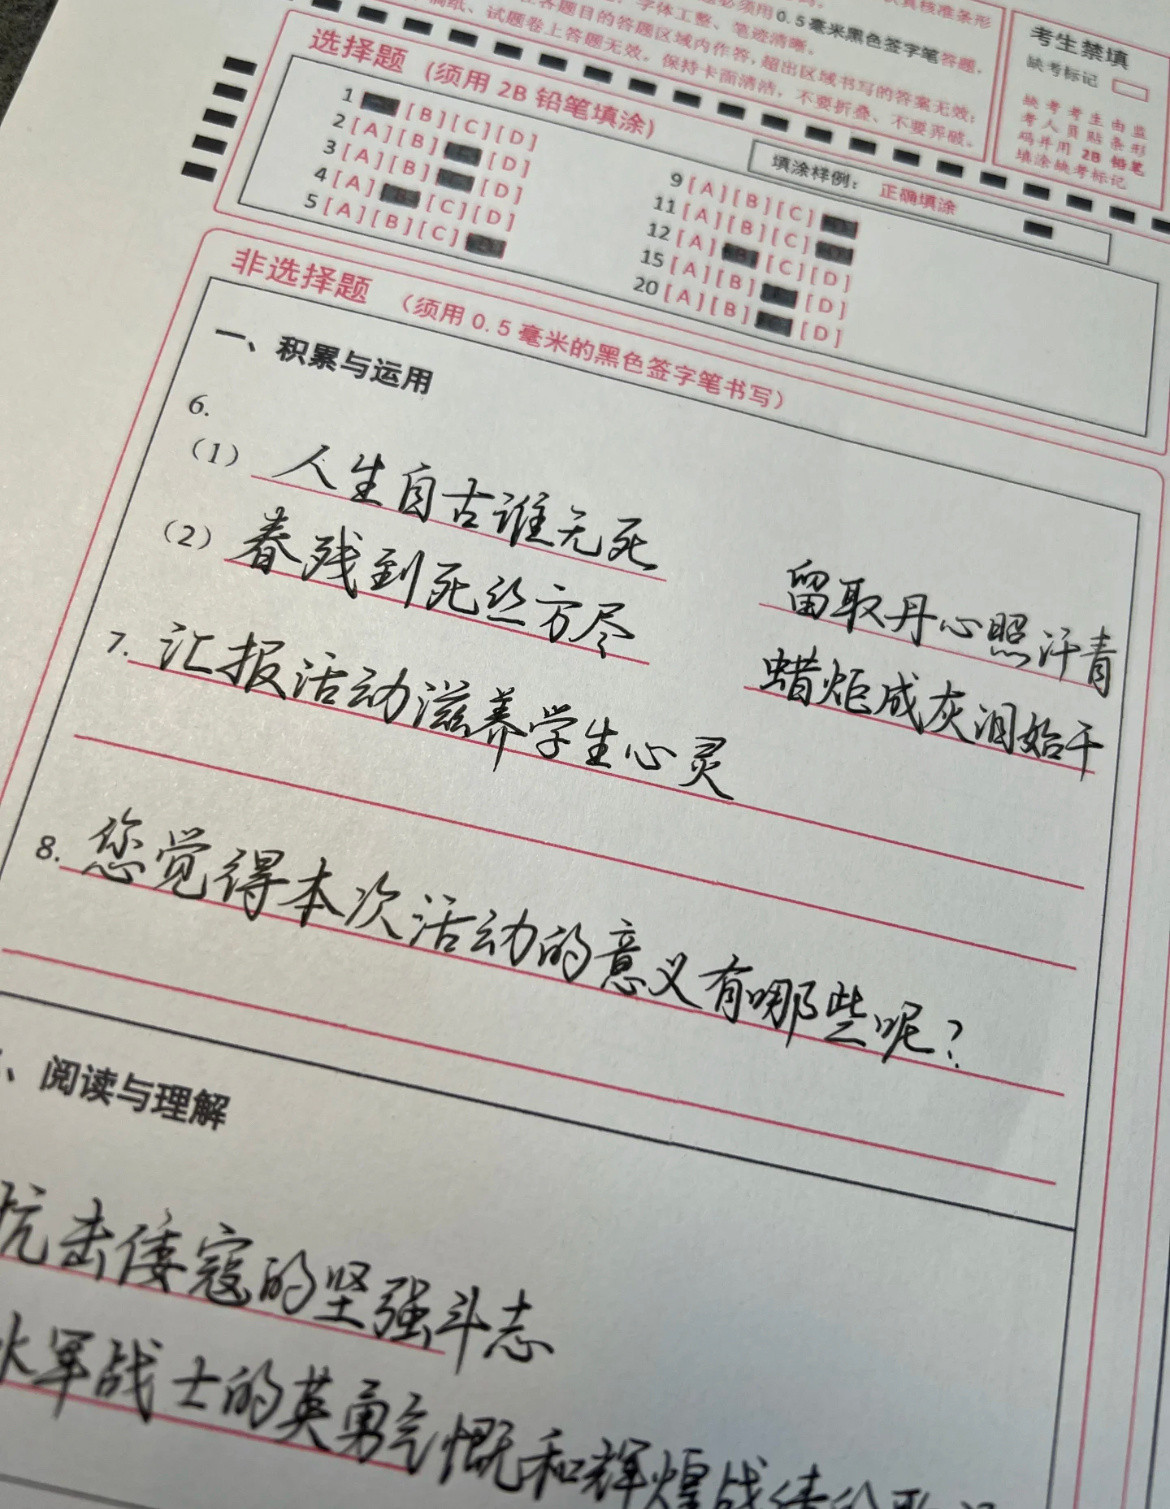 须用0.5毫米黑色签字笔答题,
字体工整、笔迹清晰。
各题目的答题区域内作答,超出区域书写的答案无效;
试题卷上答题无效。保持卡面清洁,不要折叠、不要弄破。
考生禁填
缺考标记
缺考考生由监
考人员贴条形
码并用2B铅笔
填涂缺考标记
选择题 (须用2B铅笔填涂)
填涂样例: 正确填涂
1 [B][C][D]
2 [A][B] [D]
3 [A][B] [D]
4 [A] [C][D]
5 [A][B][C]
9 [A][B][C]
11 [A][B][C]
12 [A] [C][D]
15 [A][B] [D]
20 [A][B] [D]
非选择题 (须用0.5毫米的黑色签字笔书写)
一、积累与运用
6.
(1) 人生自古谁无死 留取丹心照汗青
(2) 春残到死丝方尽 蜡炬成灰泪始干
7. 汇报活动滋养学生心灵
8. 您觉得本次活动的意义有哪些呢?
、阅读与理解
抗击倭寇的坚强斗志
军战士的英勇气慨和辉煌战绩